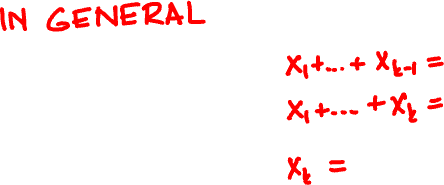 IN GENERAL
x₁+...+ x_{t-1} =
x₁+.... + x_t =
x_t =